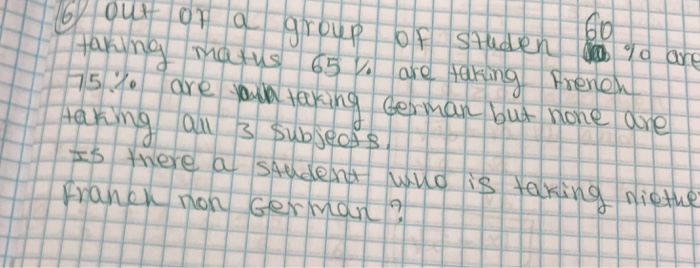 6) out of a group of studen 60 % are
taking maths 65 % are taking French
75% are taking German but none are
taking all 3 subjects.
Is there a student who is taking niethe
Franch non German?